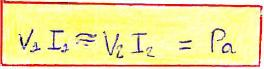 V₁ I₁ ≈ V₂ I₂ = Pa